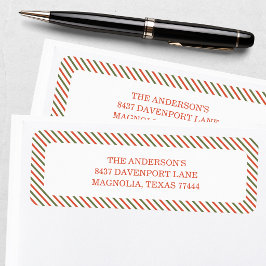 THE ANDERSON'S
8437 DAVENPORT LANE
MAGNOLIA,
THE ANDERSON'S
8437 DAVENPORT LANE
MAGNOLIA, TEXAS 77444